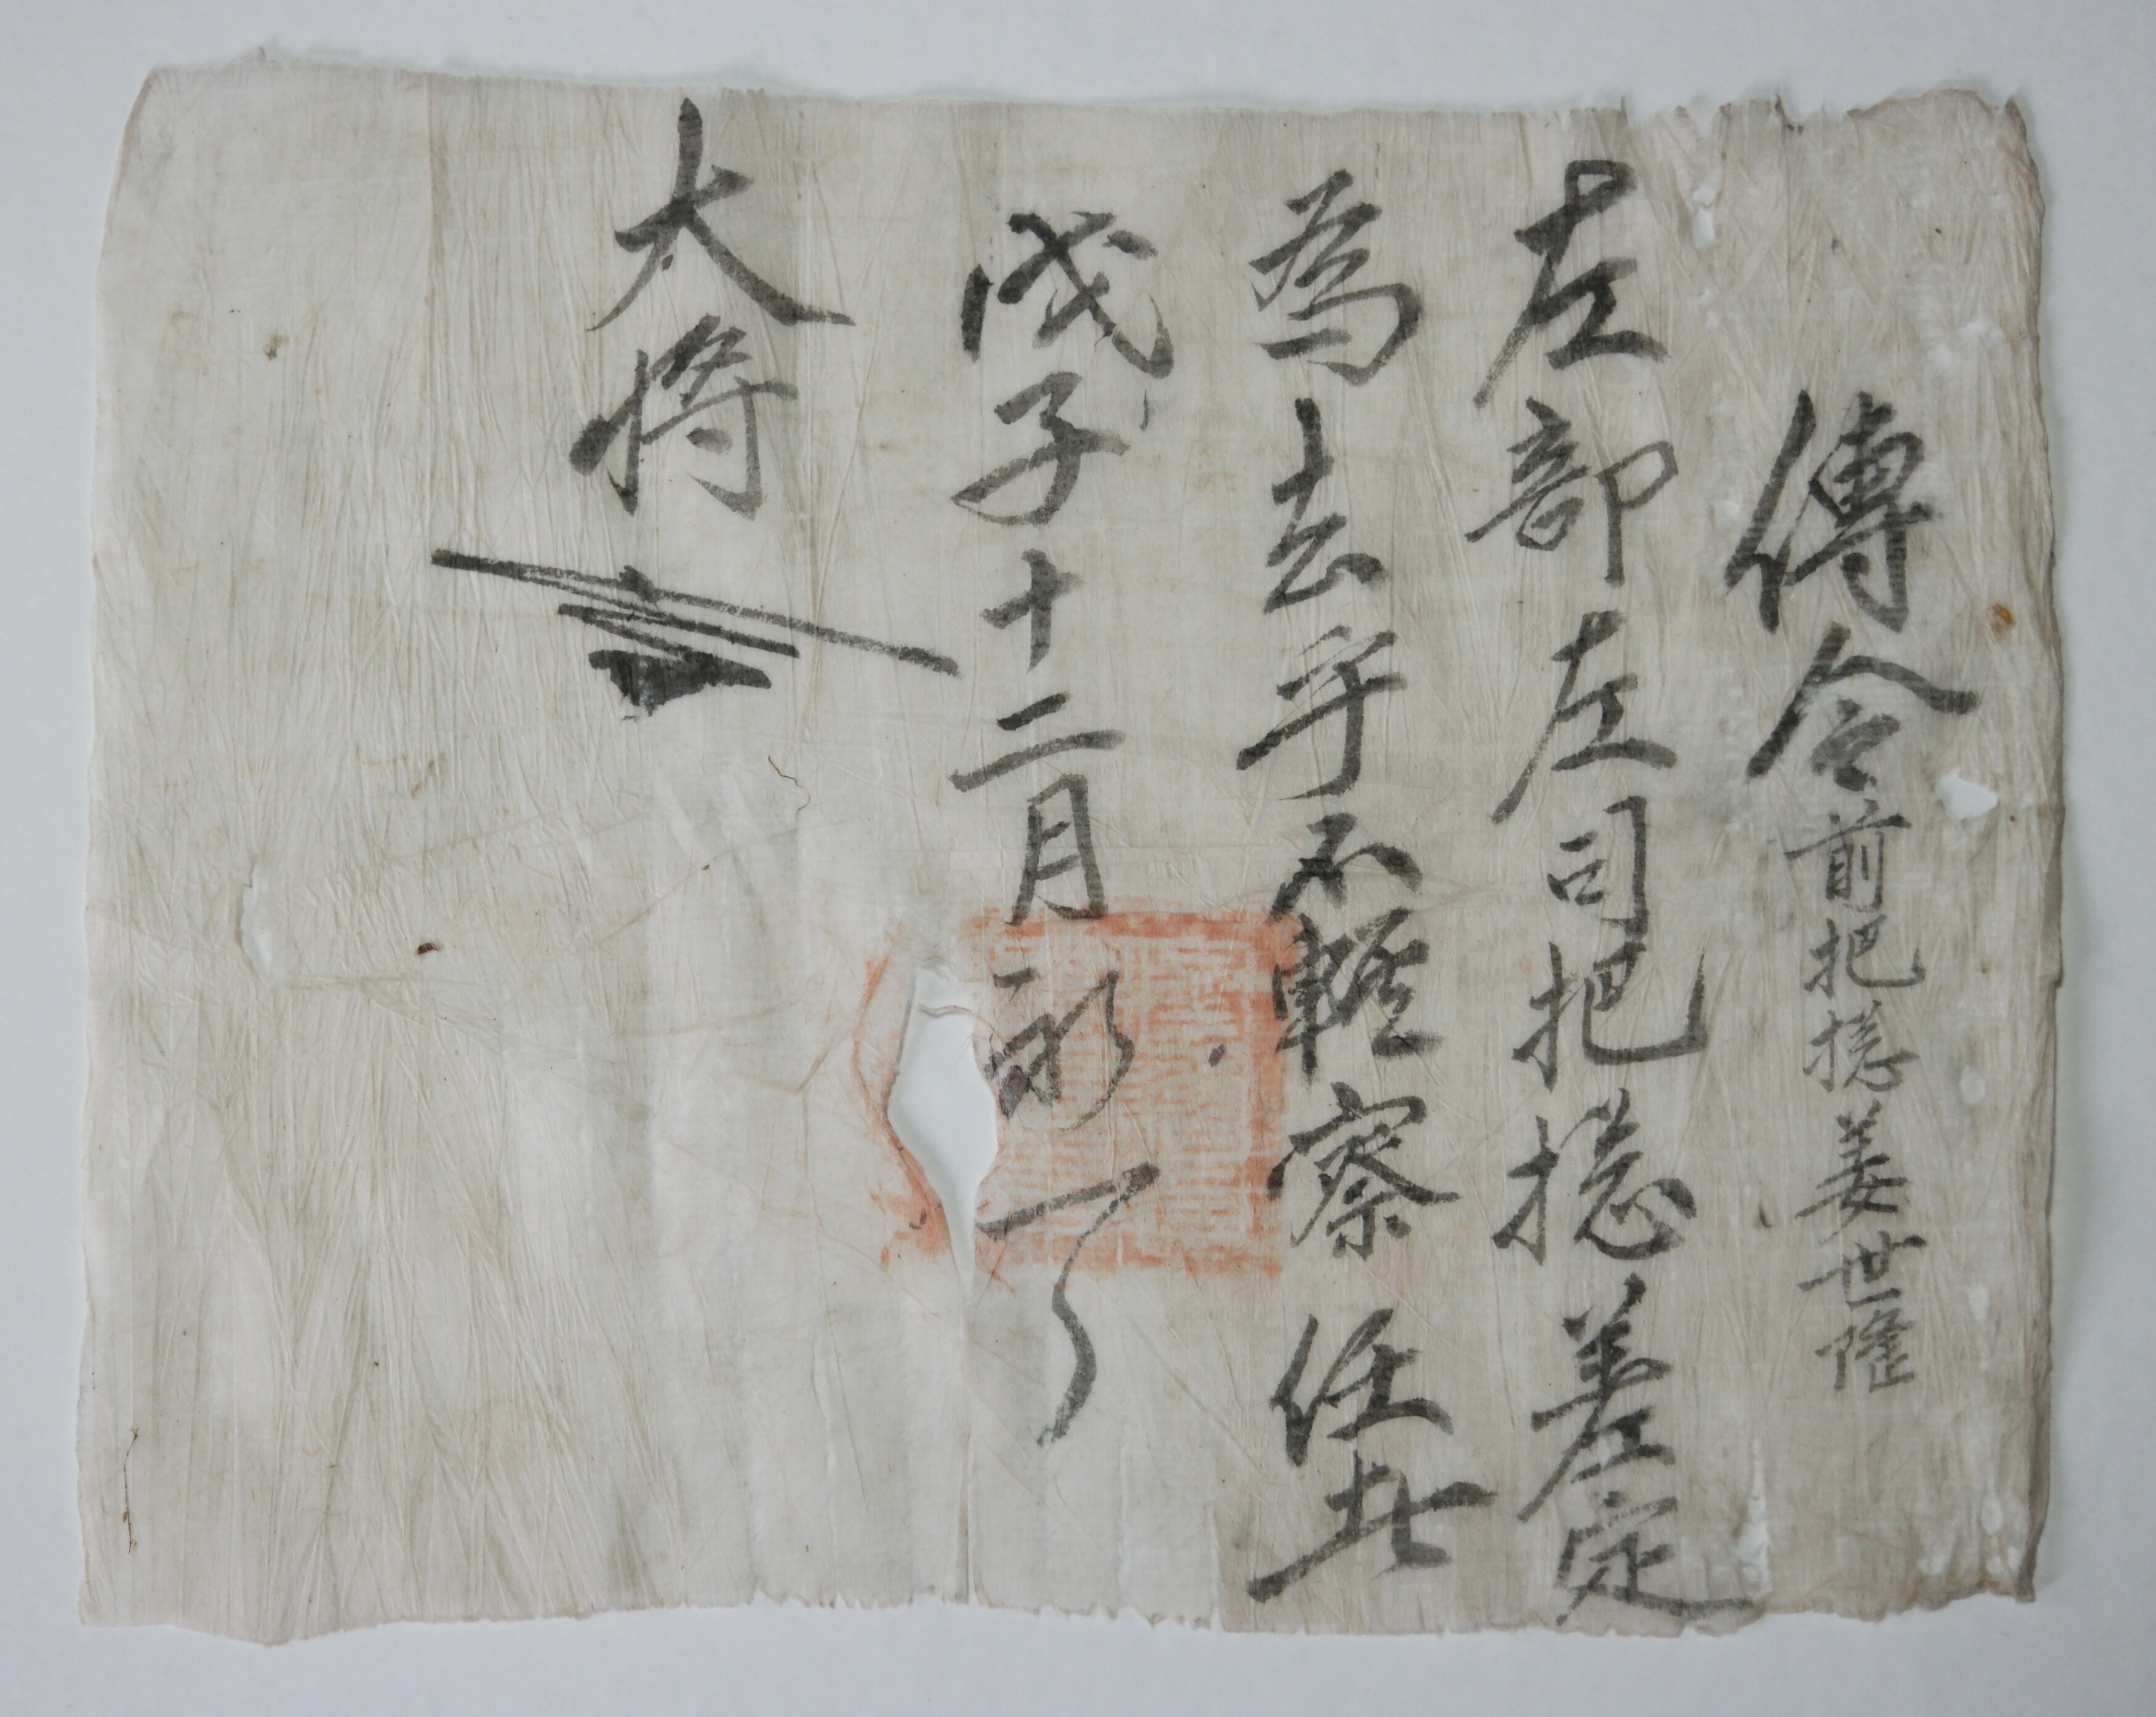 傳令 前把摠姜世隆
左部左司把摠差定
爲去乎不輕察任者
戊子十二月初
大將